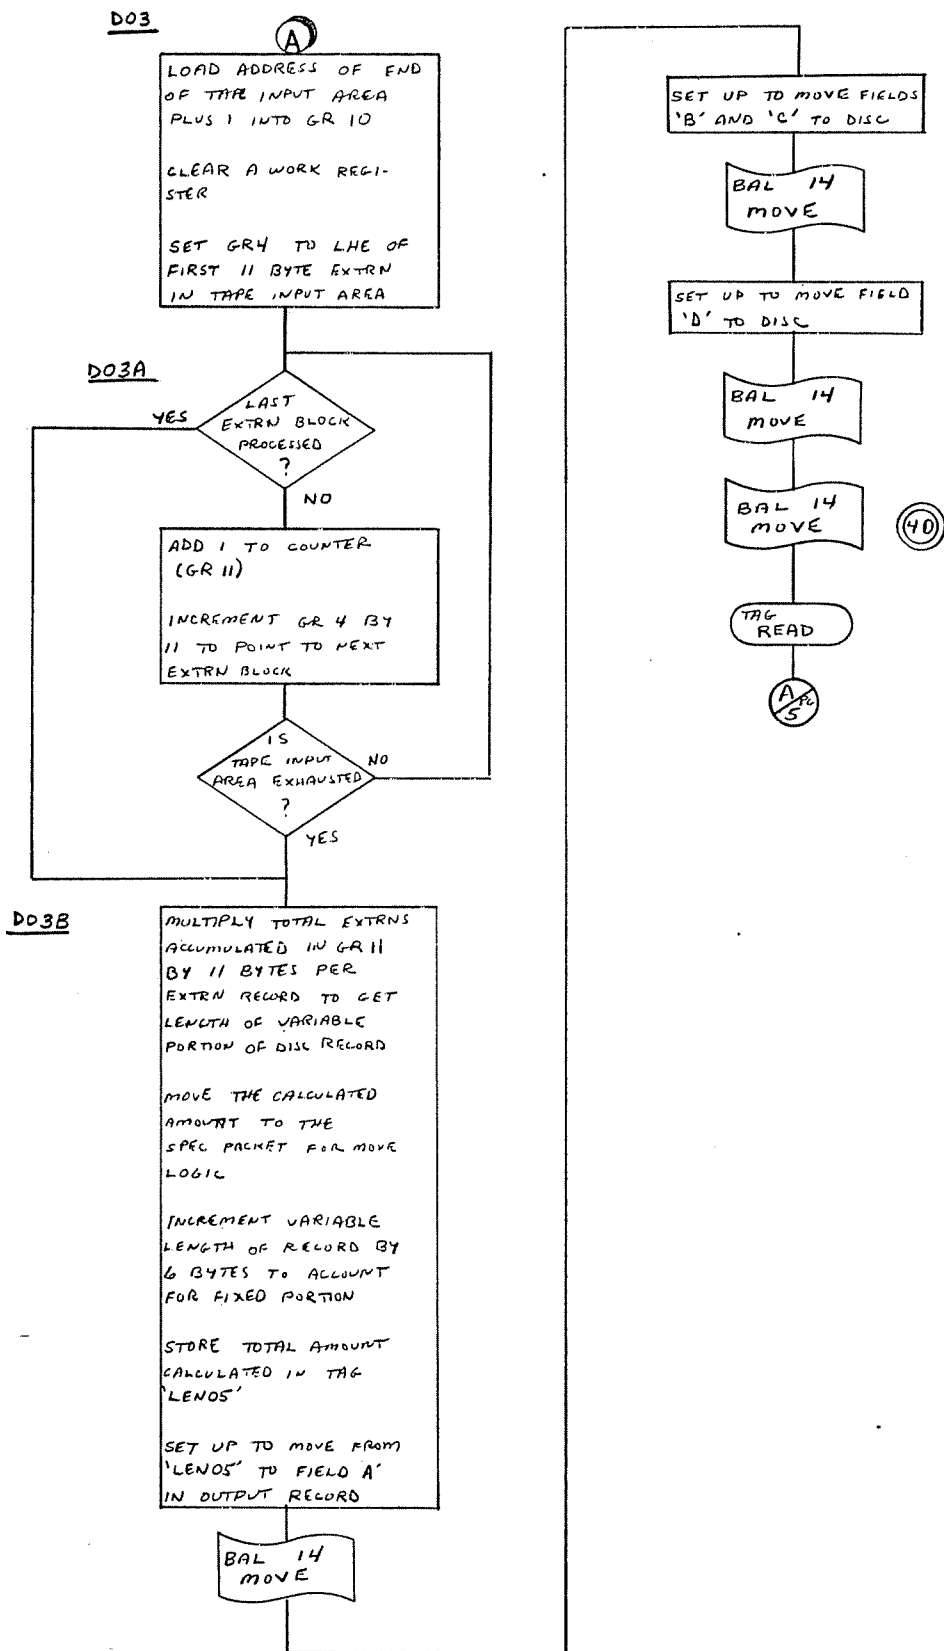 D03
A
LOAD ADDRESS OF END
OF TAPE INPUT AREA
PLUS 1 INTO GR 10
CLEAR A WORK REGI-
STER
SET GR4 TO LHE OF
FIRST 11 BYTE EXTRN
IN TAPE INPUT AREA
D03A
YES
LAST
EXTRN BLOCK
PROCESSED
?
NO
ADD 1 TO COUNTER
(GR 11)
INCREMENT GR 4 BY
11 TO POINT TO NEXT
EXTRN BLOCK
IS
TAPE INPUT
AREA EXHAUSTED
?
NO
YES
D03B
MULTIPLY TOTAL EXTRNS
ACCUMULATED IN GR 11
BY 11 BYTES PER
EXTRN RECORD TO GET
LENGTH OF VARIABLE
PORTION OF DISC RECORD
MOVE THE CALCULATED
AMOUNT TO THE
SPEC PACKET FOR MOVE
LOGIC
INCREMENT VARIABLE
LENGTH OF RECORD BY
6 BYTES TO ACCOUNT
FOR FIXED PORTION
STORE TOTAL AMOUNT
CALCULATED IN TAG
'LEN05'
SET UP TO MOVE FROM
'LEN05' TO FIELD A'
IN OUTPUT RECORD
BAL 14
MOVE
SET UP TO MOVE FIELDS
'B' AND 'C' TO DISC
BAL 14
MOVE
SET UP TO MOVE FIELD
'D' TO DISC
BAL 14
MOVE
BAL 14
MOVE
4D
TAG
READ
A PG
5